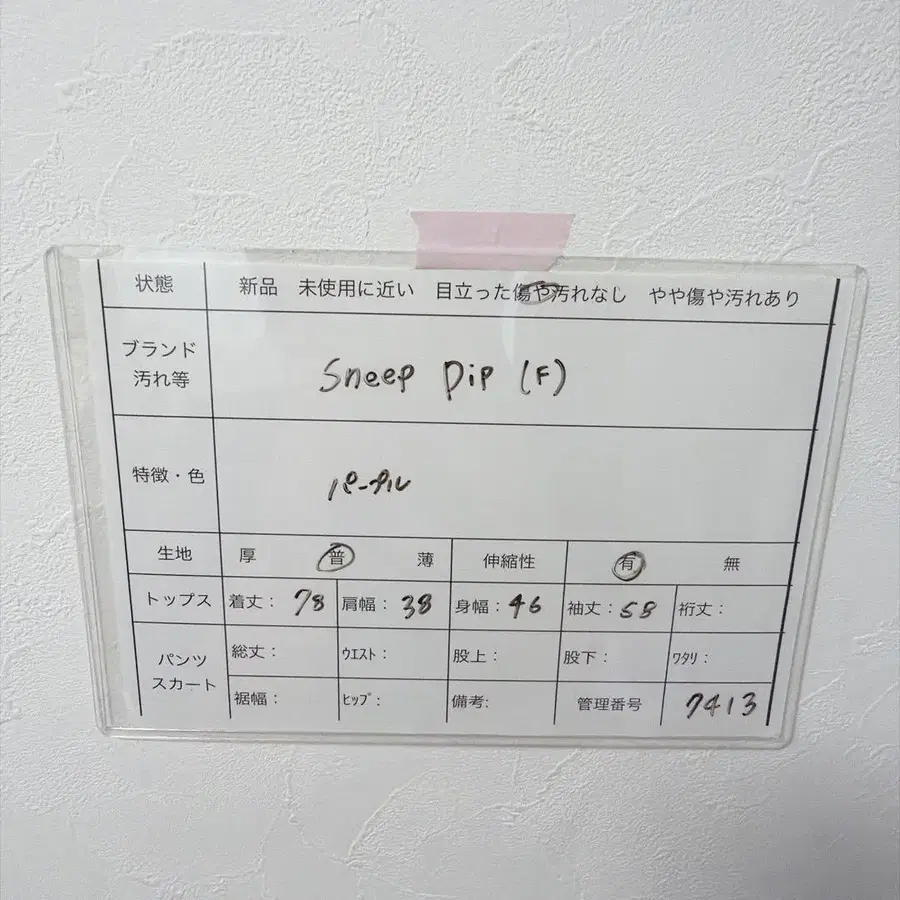 状態 新品 未使用に近い 目立った傷や汚れなし やや傷や汚れあり
ブランド
汚れ等
Sneep Dip (F)
特徴・色 パープル
生地 厚 普 薄 伸縮性 有 無
トップス 着丈: 78 肩幅: 38 身幅: 46 袖丈: 58 裄丈:
パンツ
スカート
総丈: ウエスト: 股上: 股下: ワタリ:
裾幅: ヒップ: 備考: 管理番号 7413